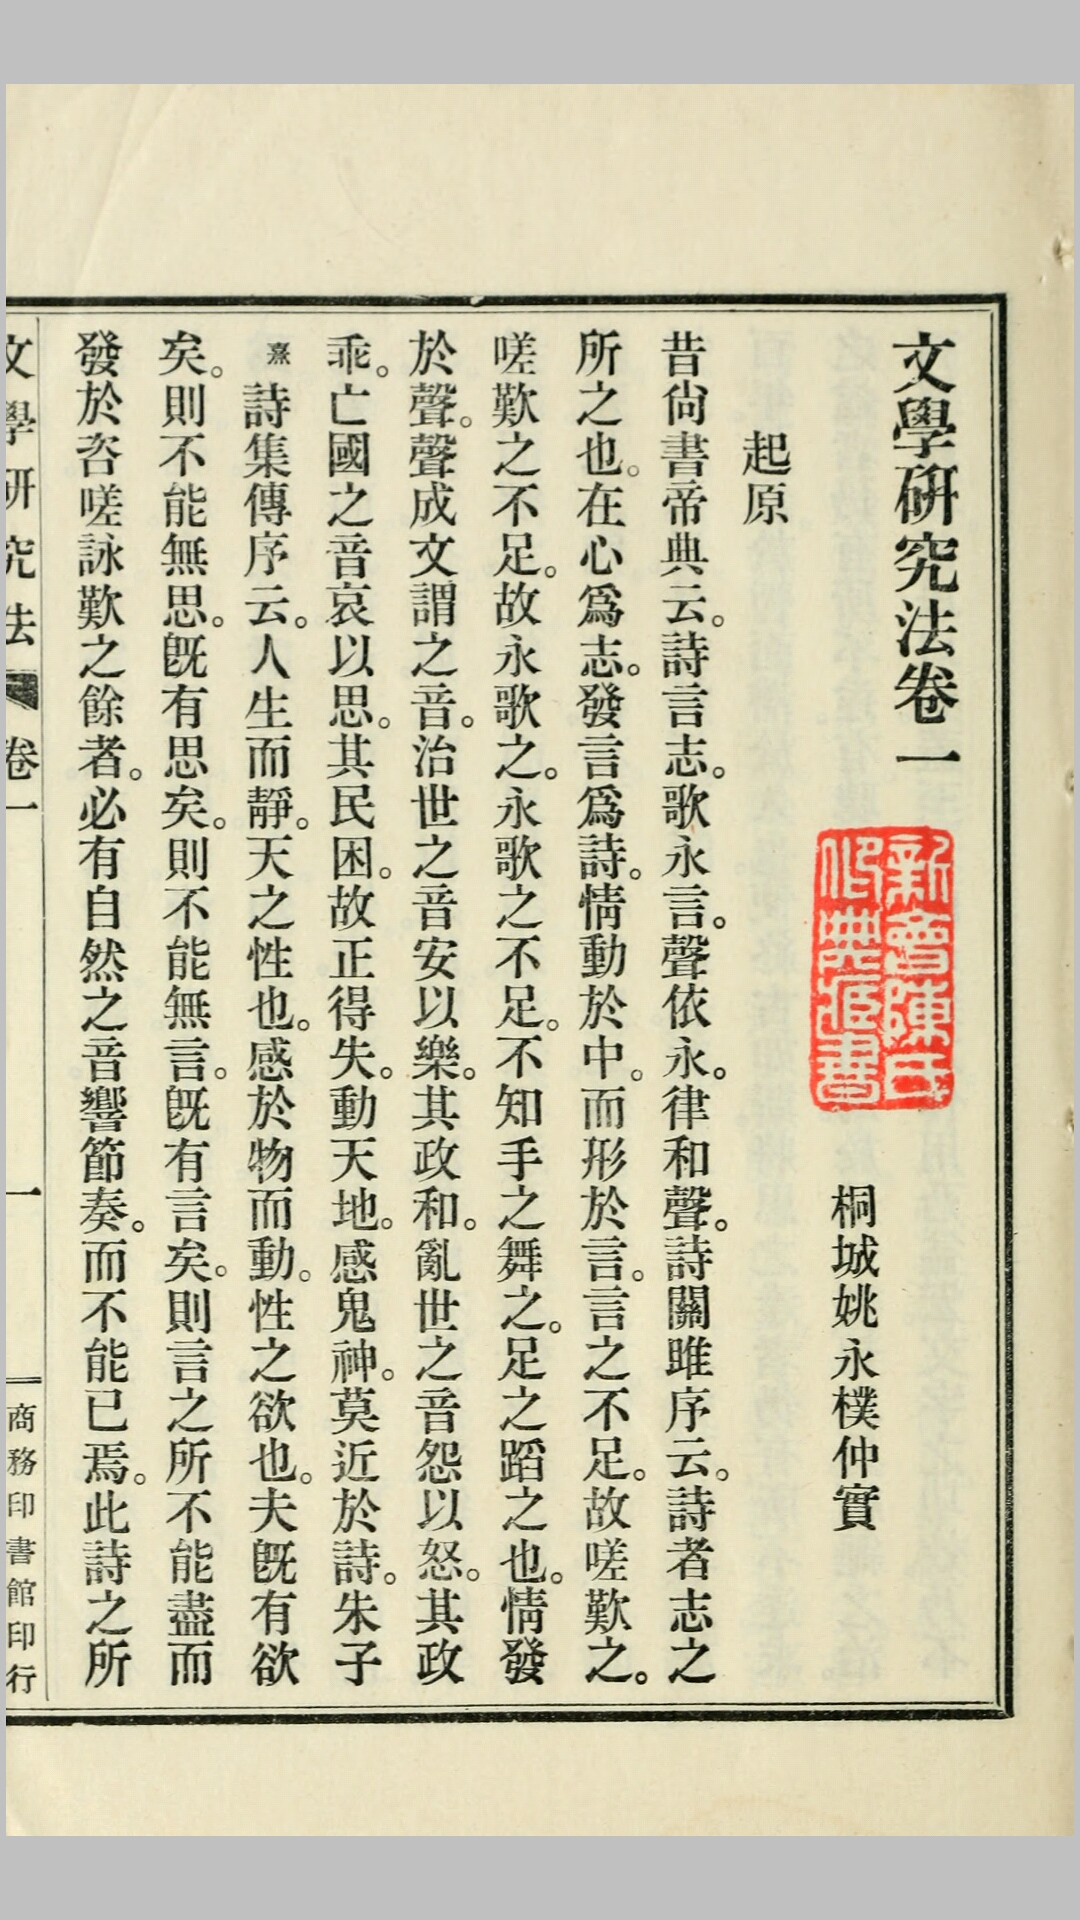 文學硏究法卷一
桐城姚永樸仲實
新會陳氏
起原
昔尙書帝典云。詩言志。歌永言。聲依永。律和聲。詩關雎序云。詩者志之
所之也。在心爲志。發言爲詩。情動於中。而形於言。言之不足。故嗟歎之。
嗟歎之不足。故永歌之。永歌之不足。不知手之舞之。足之蹈之也。情發
於聲。聲成文謂之音。治世之音安以樂。其政和。亂世之音怨以怒。其政
乖。亡國之音哀以思。其民困。故正得失。動天地。感鬼神。莫近於詩。朱子
熹詩集傳序云。人生而靜。天之性也。感於物而動。性之欲也。夫旣有欲
矣。則不能無思。旣有思矣。則不能無言。旣有言矣。則言之所不能盡而
發於咨嗟詠歎之餘者。必有自然之音響節奏。而不能已焉。此詩之所
文學硏究法 卷一 一 商務印書館印行